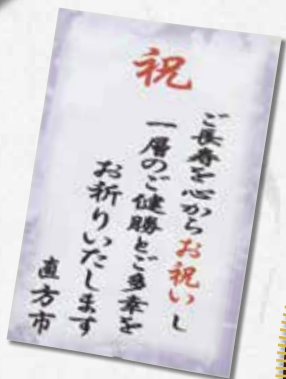 祝
ご長寿を心からお祝いし
一層のご健勝とご多幸を
お祈りいたします
直方市